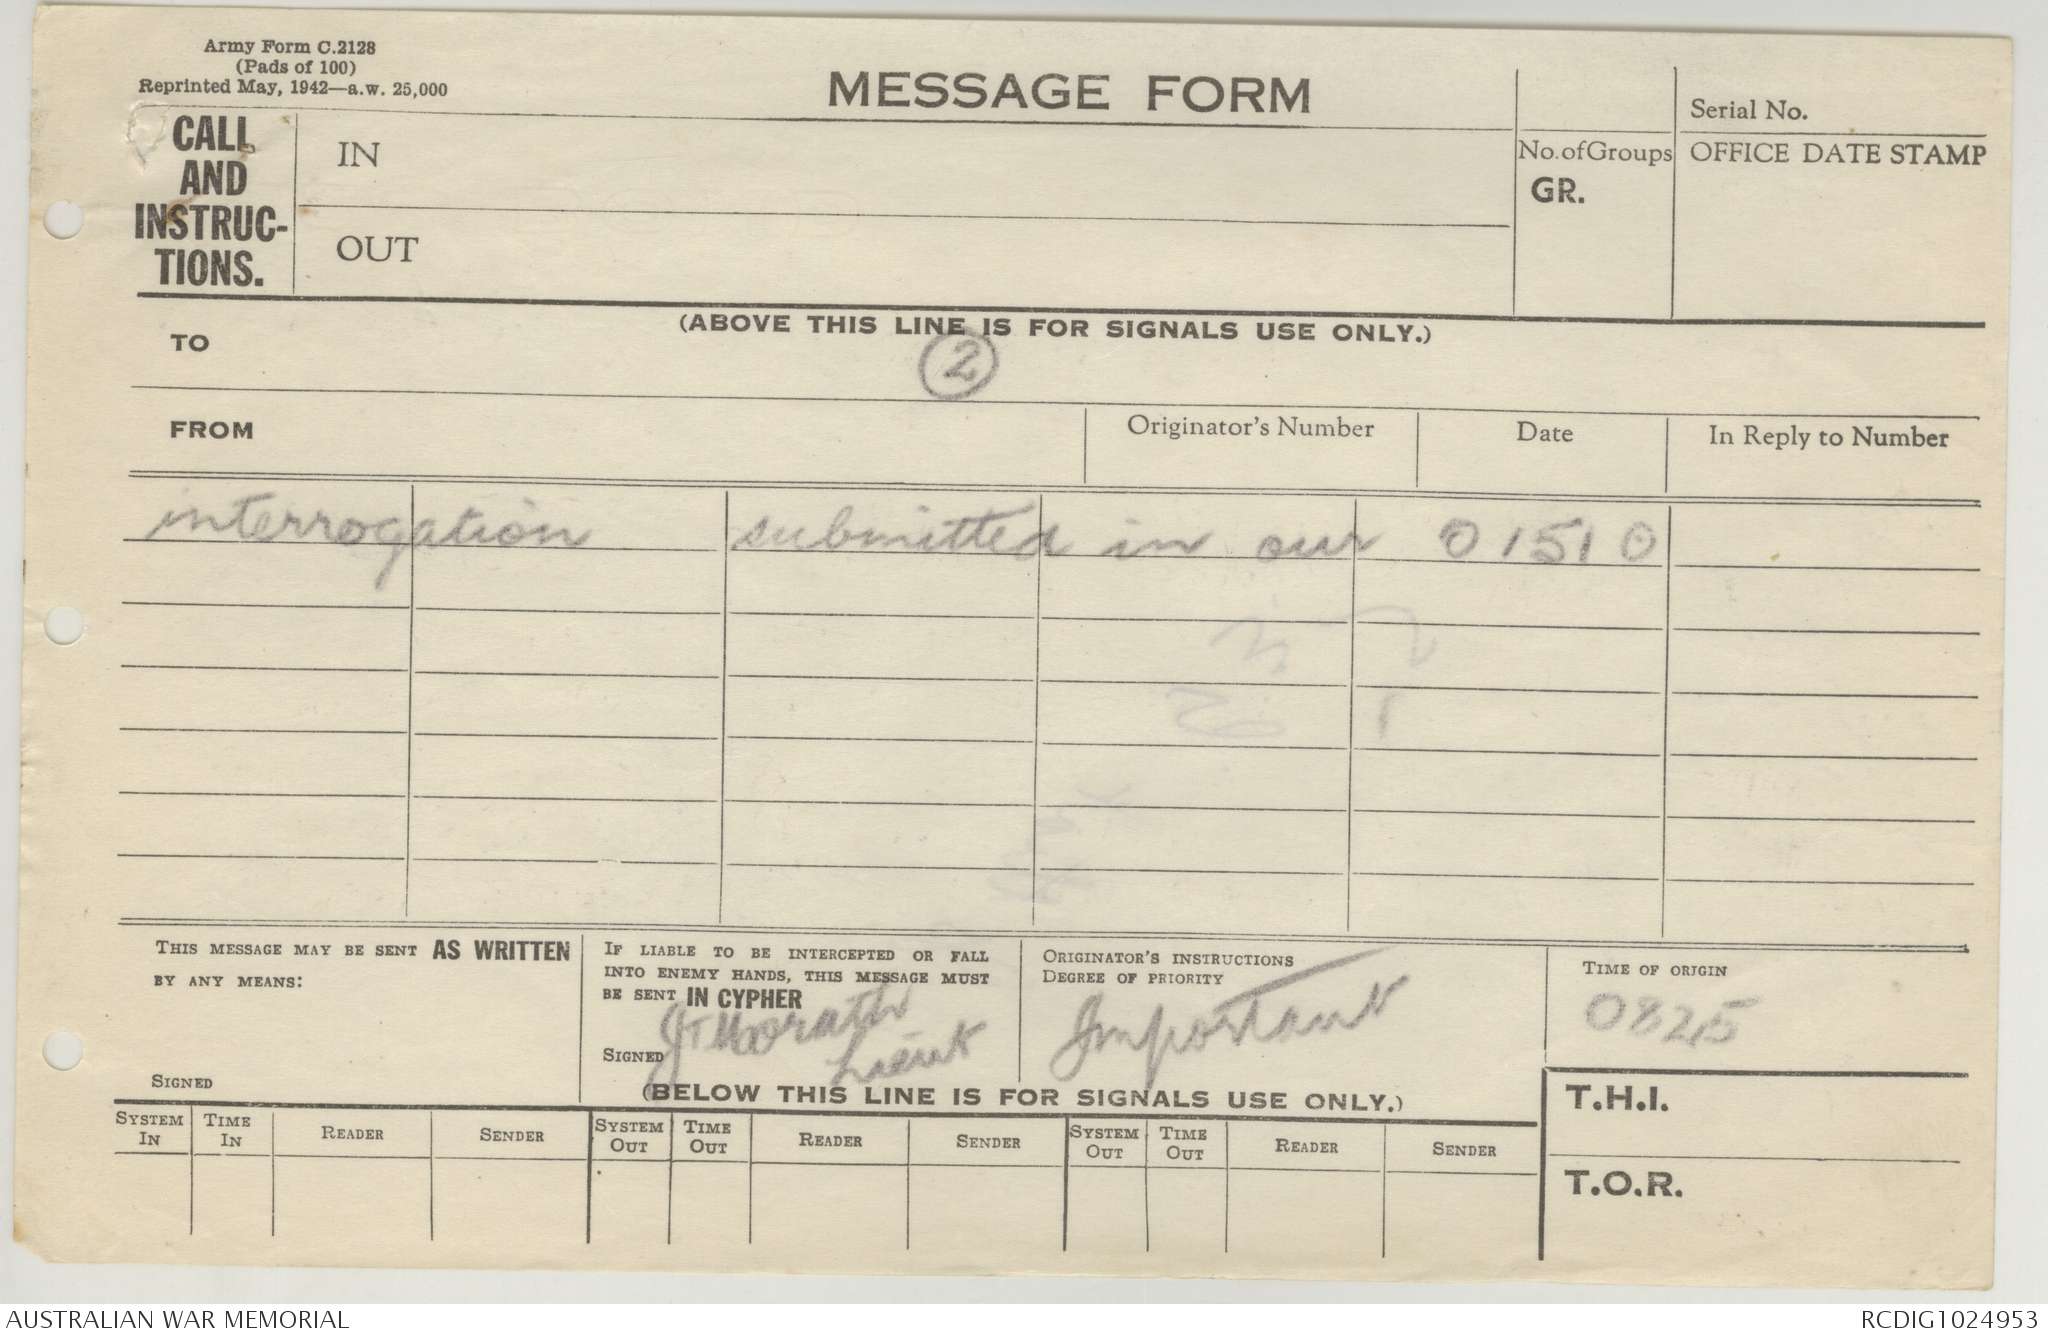 Army Form C.2128
(Pads of 100)
Reprinted May, 1942—a.w. 25,000
MESSAGE FORM
Serial No.
CALL AND INSTRUC-TIONS.
IN
No. of Groups
GR.
OFFICE DATE STAMP
OUT
(ABOVE THIS LINE IS FOR SIGNALS USE ONLY.)
TO
2
FROM
Originator's Number
Date
In Reply to Number
interrogation submitted in our O 1510
THIS MESSAGE MAY BE SENT AS WRITTEN
BY ANY MEANS:
SIGNED
IF LIABLE TO BE INTERCEPTED OR FALL
INTO ENEMY HANDS, THIS MESSAGE MUST
BE SENT IN CYPHER
SIGNED
Lieut
ORIGINATOR'S INSTRUCTIONS
DEGREE OF PRIORITY
Important
TIME OF ORIGIN
0825
(BELOW THIS LINE IS FOR SIGNALS USE ONLY.)
T.H.I.
SYSTEM IN
TIME IN
READER
SENDER
SYSTEM OUT
TIME OUT
READER
SENDER
SYSTEM OUT
TIME OUT
READER
SENDER
T.O.R.
AUSTRALIAN WAR MEMORIAL
RCDIG1024953